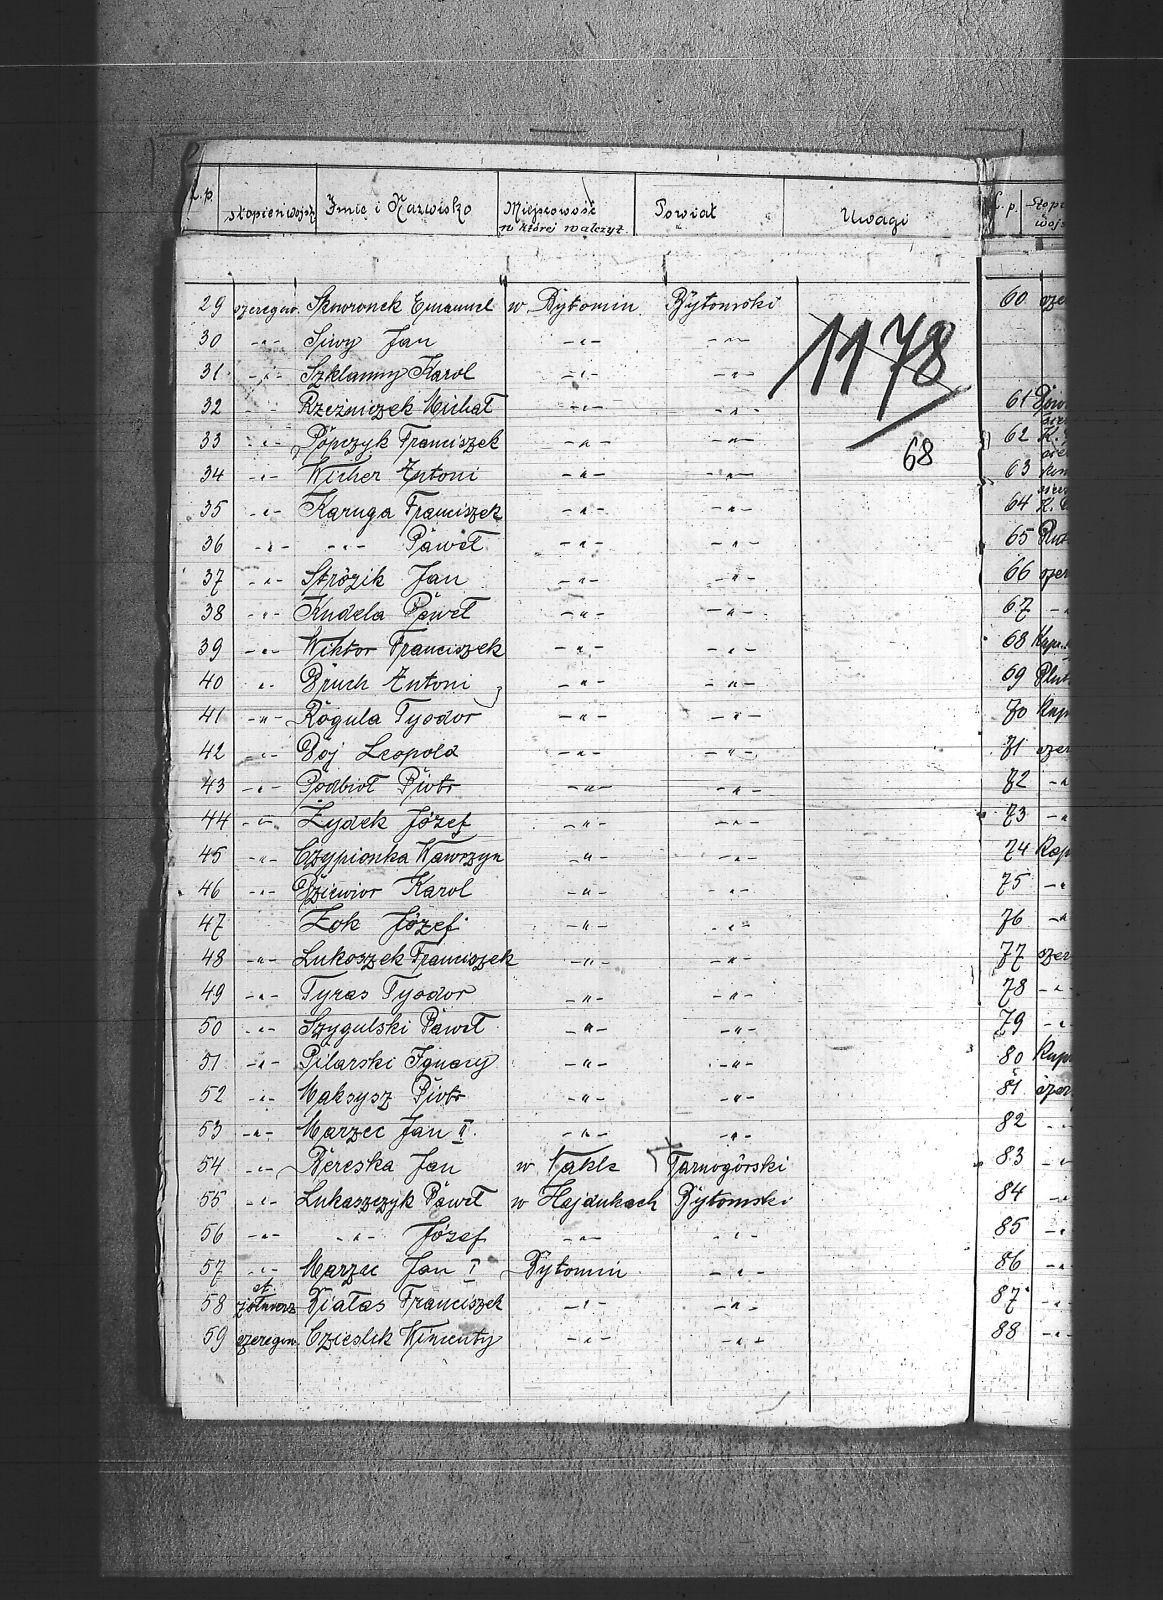 L.p. Stopień wojsk. Imię i Nazwisko Miejscowość w której walczył Powiat Uwagi
29 szeregow. Skowronek Emanuel w Bytomiu Bytomski
30 -"- Siwy Jan -"- -"-
31 -"- Szklanny Karol -"- -"-
32 -"- Rzeźniczek Michał -"- -"-
33 -"- Popczyk Franciszek -"- -"-
34 -"- Wicher Antoni -"- -"-
35 -"- Karuga Franciszek -"- -"-
36 -"- -"- Paweł -"- -"-
37 -"- Strózik Jan -"- -"-
38 -"- Kudela Paweł -"- -"-
39 -"- Wiktor Franciszek -"- -"-
40 -"- Druch Antoni -"- -"-
41 -"- Rogula Tyodor -"- -"-
42 -"- Boj Leopold -"- -"-
43 -"- Podbioł Piotr -"- -"-
44 -"- Żydek Józef -"- -"-
45 -"- Czypionka Wawrzyn -"- -"-
46 -"- Dziewior Karol -"- -"-
47 Żok Józef -"- -"-
48 -"- Lukoszek Franciszek -"- -"-
49 -"- Tyras Tyodor -"- -"-
50 -"- Szygulski Paweł -"- -"-
51 -"- Pilarski Ignacy -"- -"-
52 -"- Maksysz Piotr -"- -"-
53 -"- Marzec Jan II -"- -"-
54 -"- Bereska Jan w Nakle Tarnogórski
55 -"- Lukaszczyk Paweł w Hajdukach Bytomski
56 -"- -"- Józef -"- -"-
57 -"- Marzec Jan I Bytomiu -"-
58 st. żołnierz Białas Franciszek -"- -"-
59 szeregow. Czieslik Wincenty -"- -"-
1178
68
L.p.
60
61
62
63
64
65
66
67 -"-
68
69
70
71
72 -"-
73 -"-
74
75 -"-
76 -"-
77
78 -"-
79 -"-
80
81
82 -"-
83 -"-
84 -"-
85 -"-
86 -"-
87 -"-
88 -"-